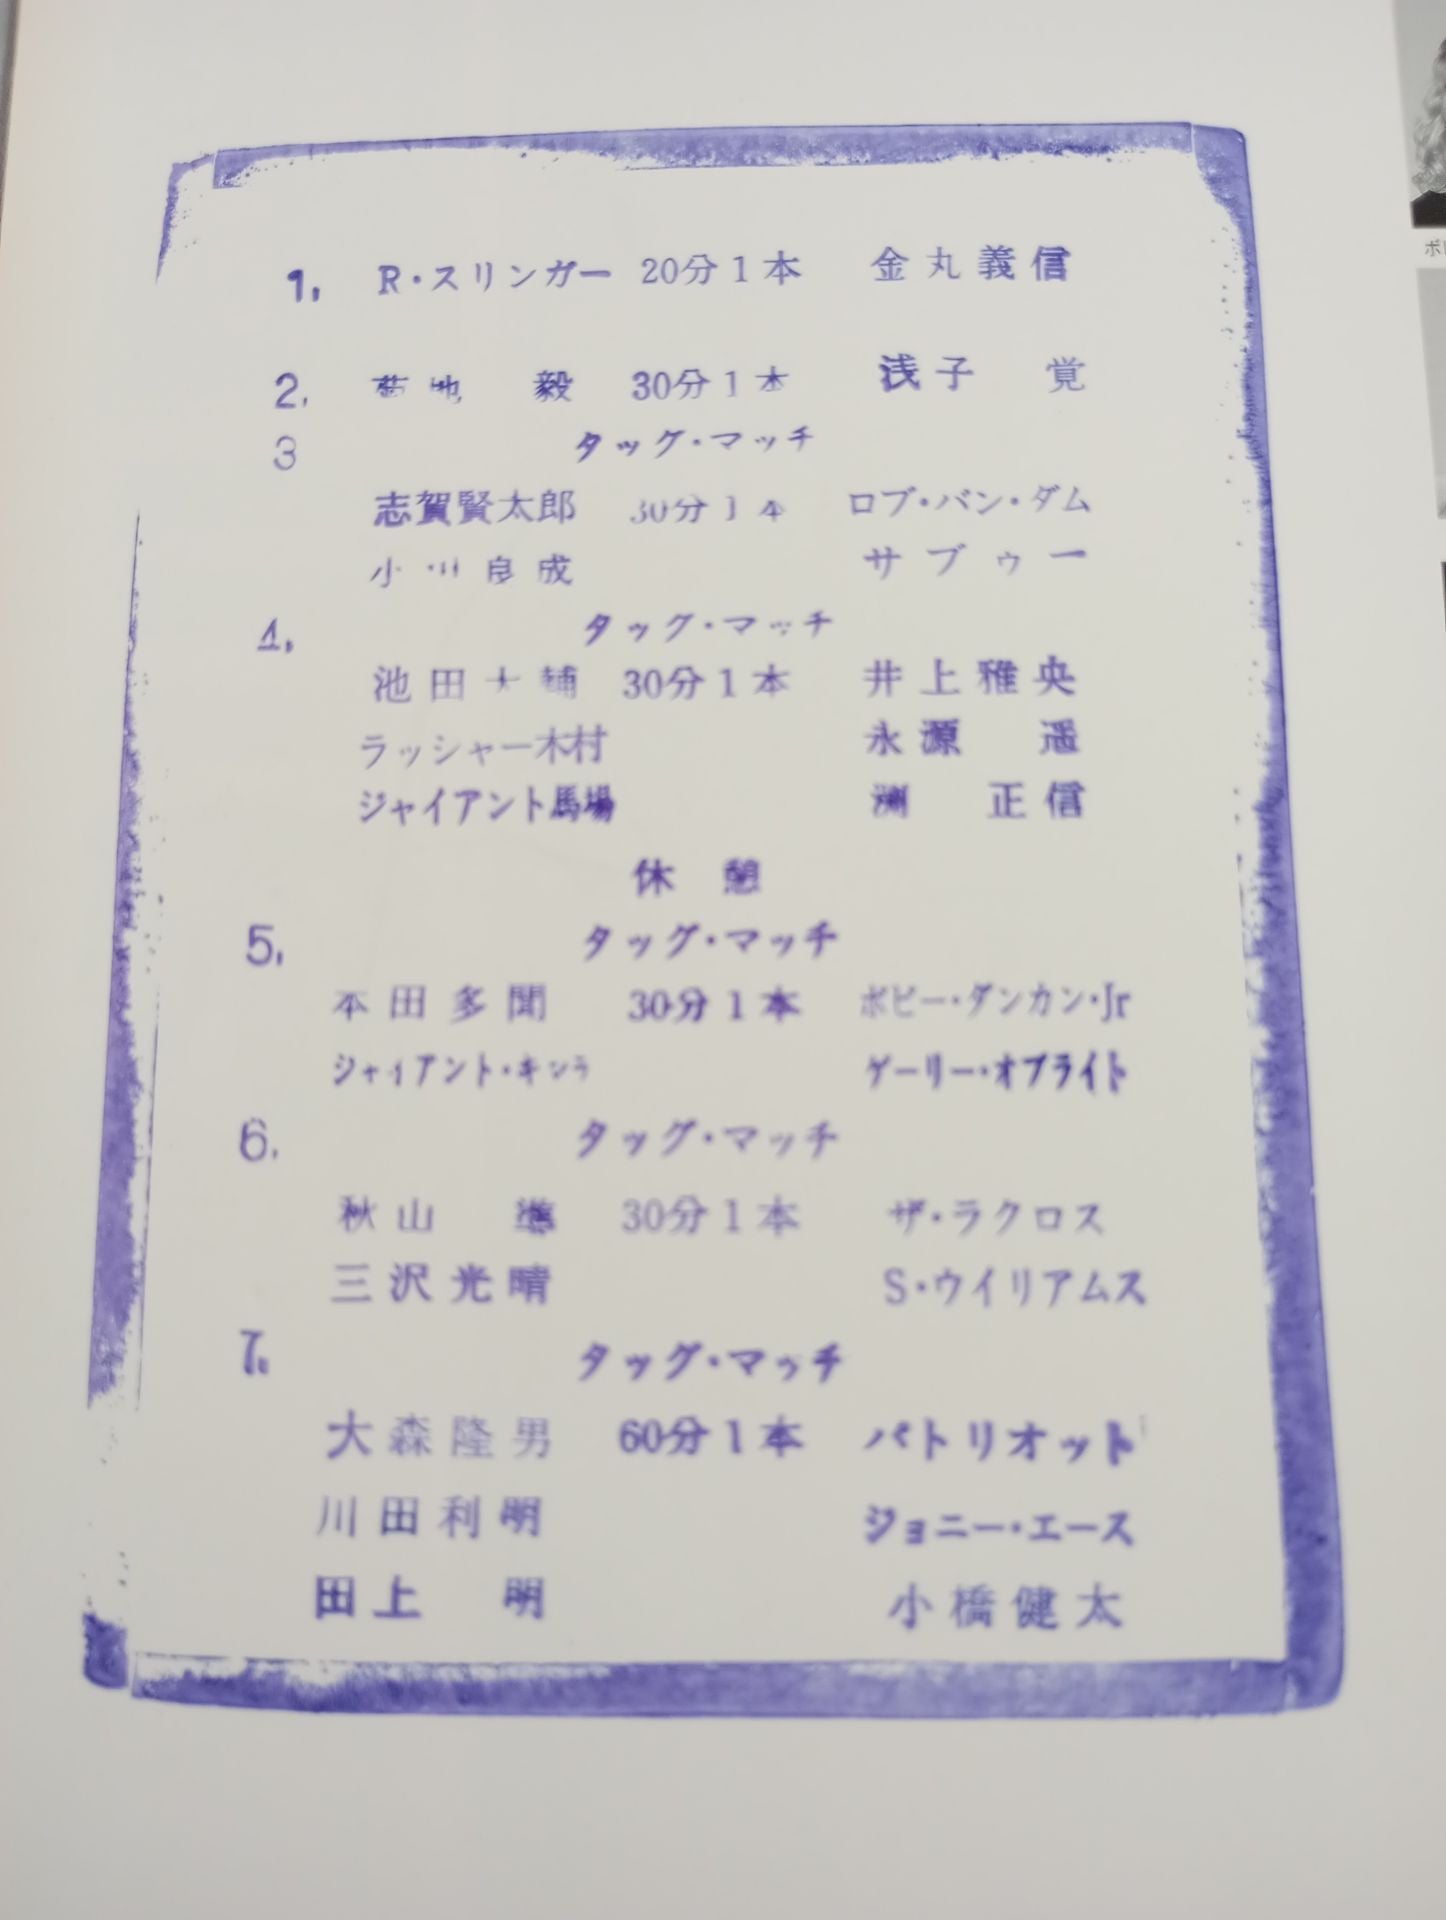 1. R・スリンガー 20分1本 金丸義信
2. 菊地 毅 30分1本 浅子 覚
3 タッグ・マッチ
志賀賢太郎 30分1本 ロブ・バン・ダム
小川良成 サブゥー
4. タッグ・マッチ
池田大輔 30分1本 井上雅央
ラッシャー木村 永源 遥
ジャイアント馬場 渕 正信
休憩
5. タッグ・マッチ
本田多聞 30分1本 ボビー・ダンカン・Jr
ジャイアント・キマラ ゲーリー・オブライト
6. タッグ・マッチ
秋山 準 30分1本 ザ・ラクロス
三沢光晴 S・ウイリアムス
7. タッグ・マッチ
大森隆男 60分1本 パトリオット
川田利明 ジョニー・エース
田上 明 小橋健太